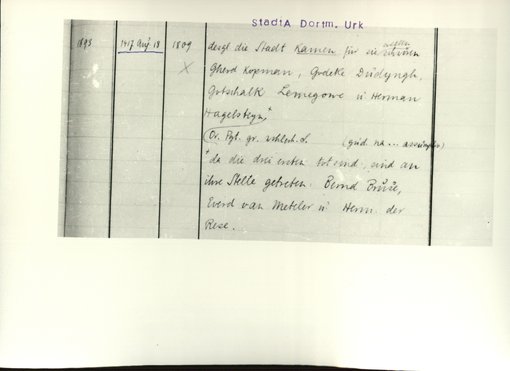 StadtA Dortm. Urk
1893 1417 Aug 18 1809 desgl die Stadt Kamen für sie
X Gherd Kopman, Godeke Düdyngh,
Gotschalk Lemegowe u Herman
Hagelsteyn +
Or. Pgt. gr.
+ da die drei ersten tot sind, sind an
ihre Stelle getreten: Bernd Brüse,
Everd van Meteler u Herm. der
Rese.